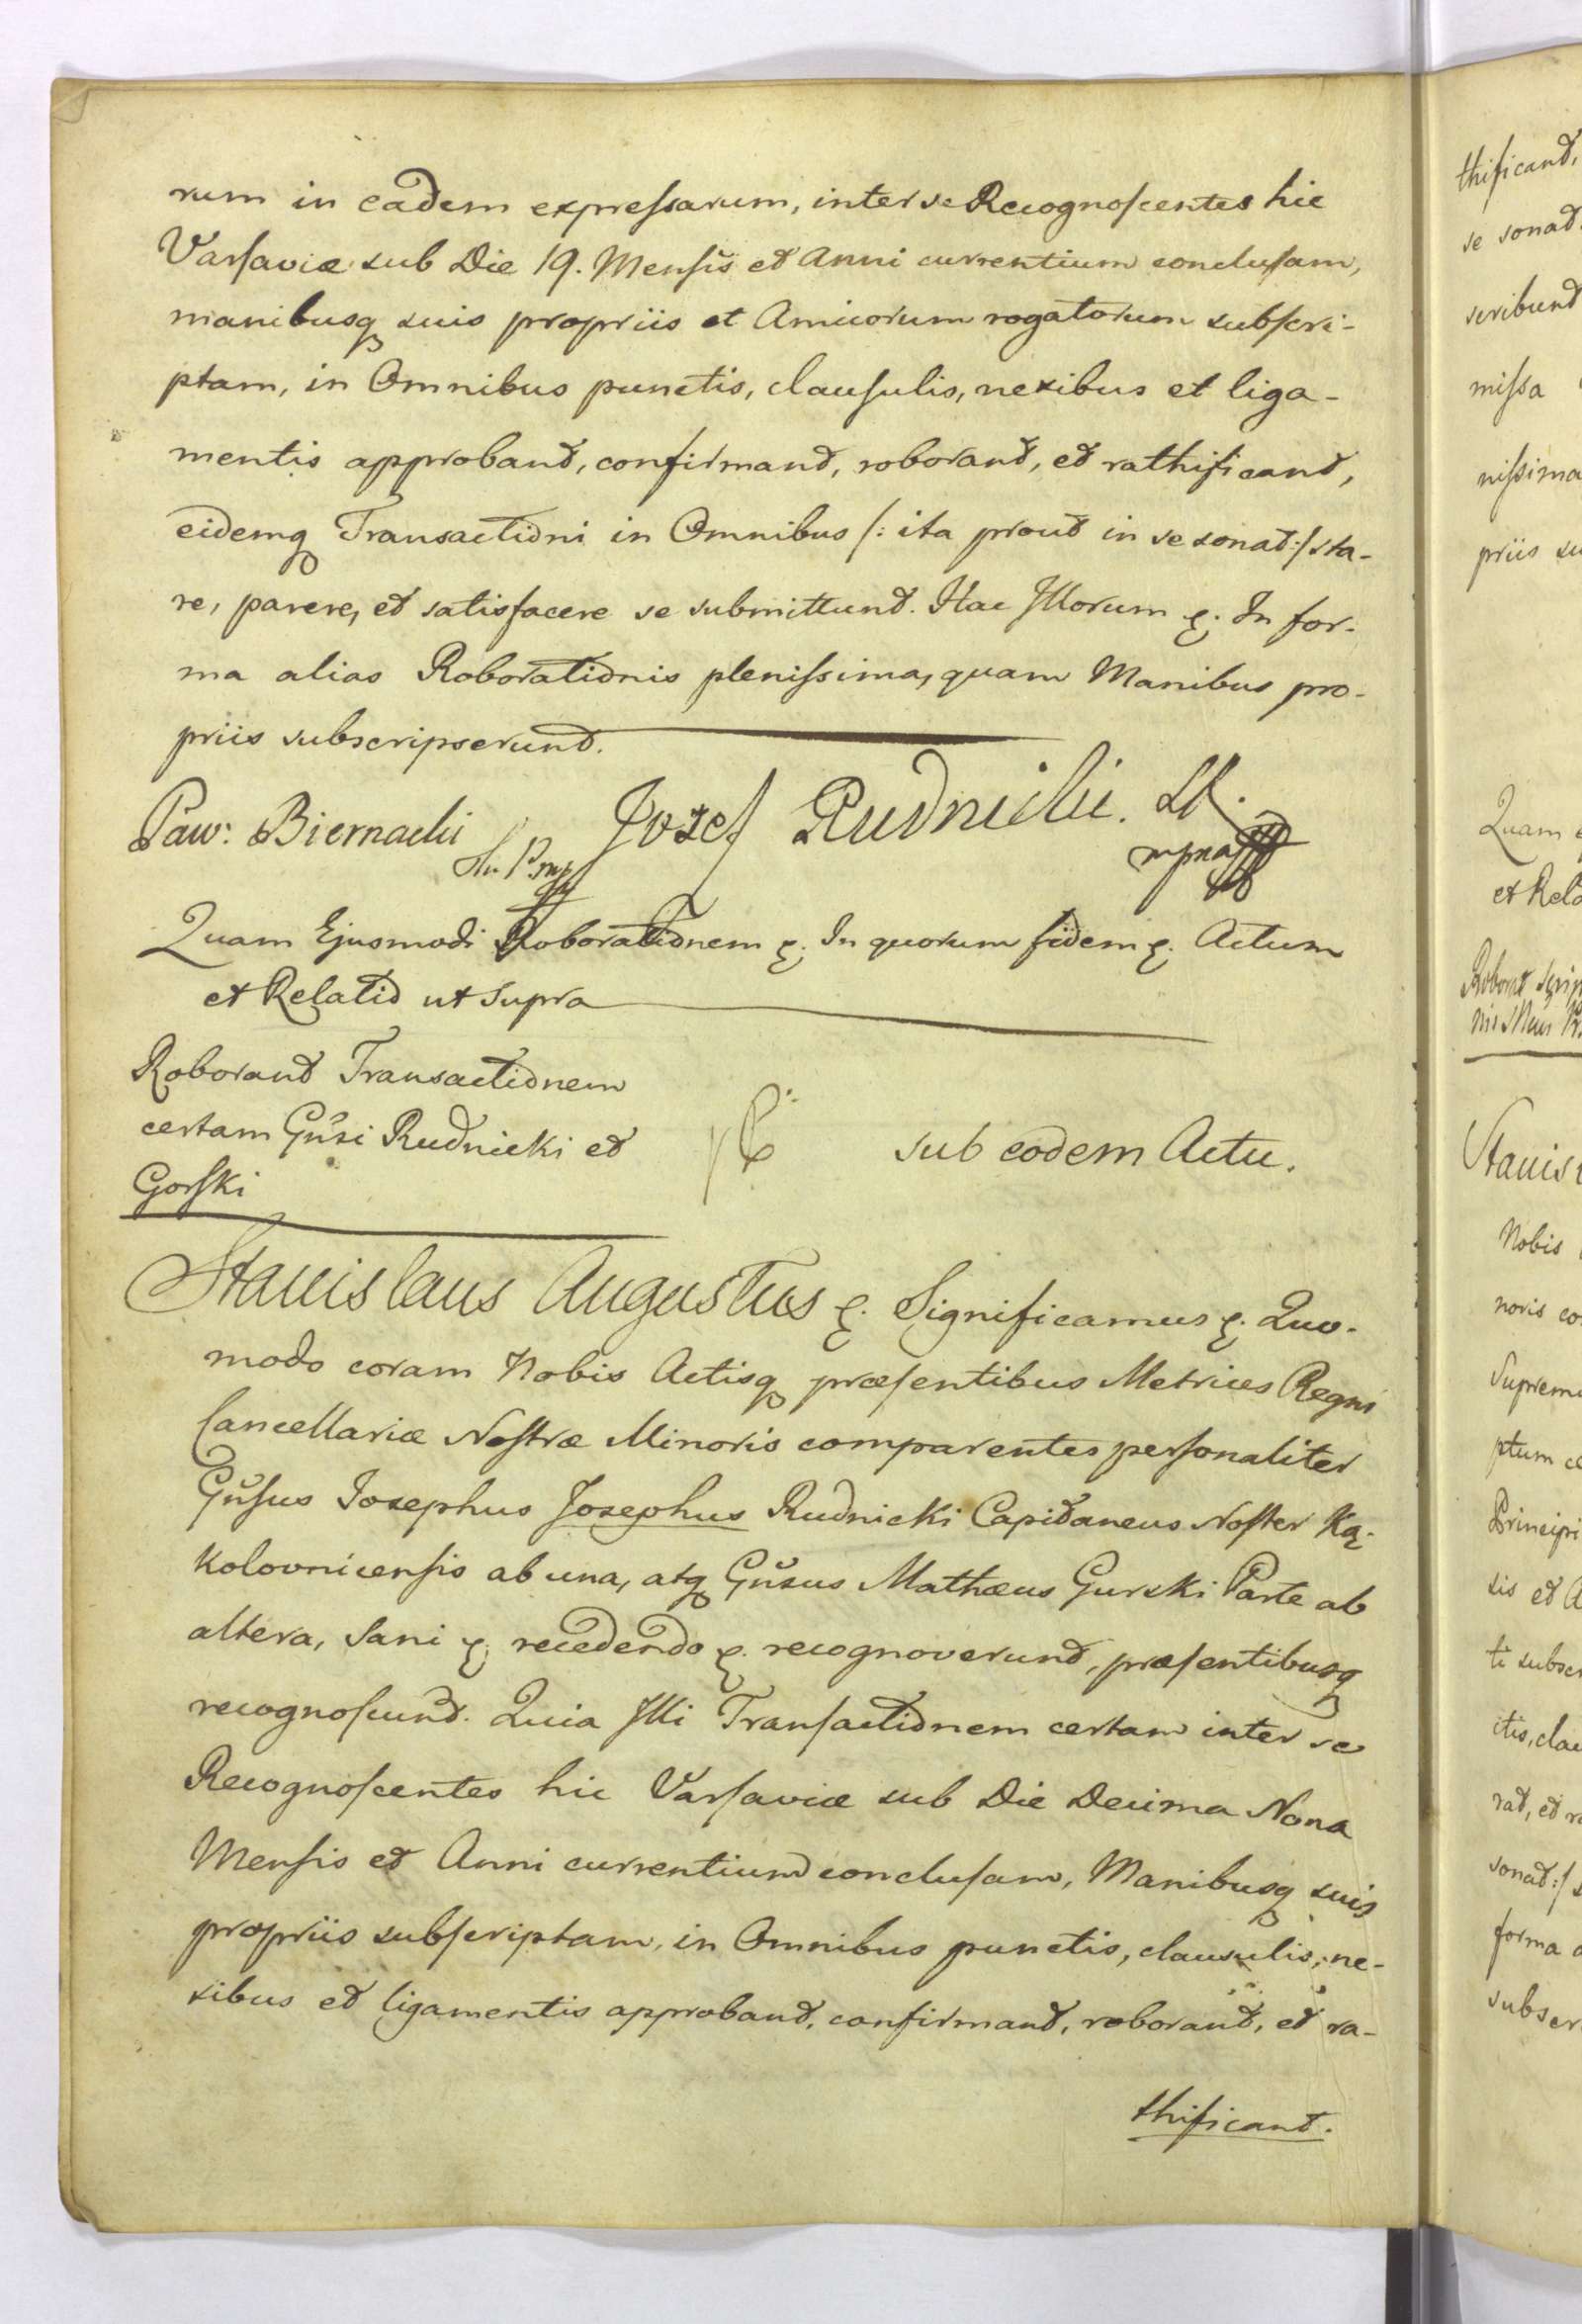 rum in eadem expreſsarum, inter se Recognoſcentes hic
Varſaviæ sub Die 19. Menſis et Anni currentium concluſam,
manibusq suis propriis et Amicorum rogatorum subſcri-
ptam, in Omnibus punctis, clauſulis, nexibus et liga-
mentis approband, confirmand, roborand, et rathificand,
eidemq Transactioni in Omnibus /: ita prout in se sonat :/ sta-
re, parere, et satisfacere se submittunt. Hac Illorum &. In for-
ma alias Roborationis pleniſsima, quam Manibus pro-
priis subscripserunt.
Paw: Biernacki
Jozef Rudnicki.
mpria
Quam Ejusmodi Roborationem &. In quorum fidem &. Actum
et Relatio ut Supra
Roborant Transactionem
certam Gnsi Rudnicki et
Gorſki
sub eodem Actu.
Stanislaus Augustus &. Significamus &. Quo-
modo coram Nobis Actisq præſentibus Metrices Regni
Cancellariæ Noſtræ Minoris comparentes perſonaliter
Gnſus Josephus Josephus Rudnicki Capitaneus Noſter Ką-
kolovnicenſis ab una, atq Gnsus Mathæus Gurski Parte ab
altera, Sani &. recedendo &. recognoverunt, præſentibusq
recognoſcunt. Quia Illi Tranſactionem certam inter se
Recognoſcentes hic Varſaviæ sub Die Decima Nona
Menſis et Anni currentium concluſam, Manibusq suis
propriis subſcriptam, in Omnibus punctis, clausulis, ne-
xibus et ligamentis approband, confirmand, roborand, et ra-
thificant.
thificand,
se sonat
scribunt
miſsa
niſsima
priis su
Quam
et Rela
Stanis
Nobis
noris co
Suprem
ptum ce
Principi
sis et A
ti subsc
itis, clau
rat, et ra
sonat :/ s
forma a
subscr